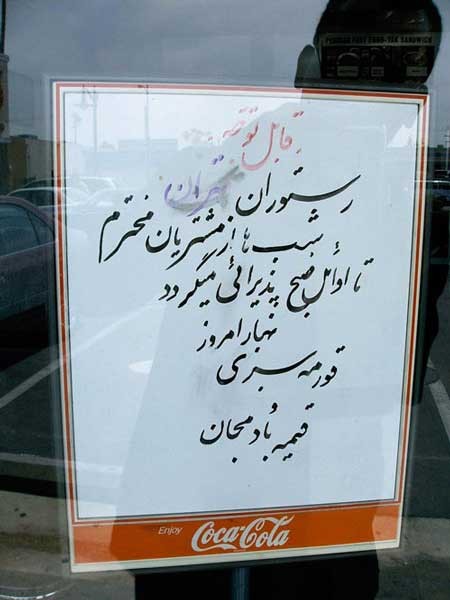 PERSIAN FAST FOOD-TAK SANDWICH
قابل توجه
رستوران تهران
شب ها از مشتریان محترم
تا اوائل صبح پذیرائی میگردد
نهار امروز
قورمه سبزی
قیمه بادمجان
Enjoy Coca-Cola